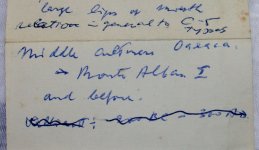 large lips of mouth
relation in general to C-5
Types
Middle cultures Oaxaca.
→ Monte Alban I
and before.